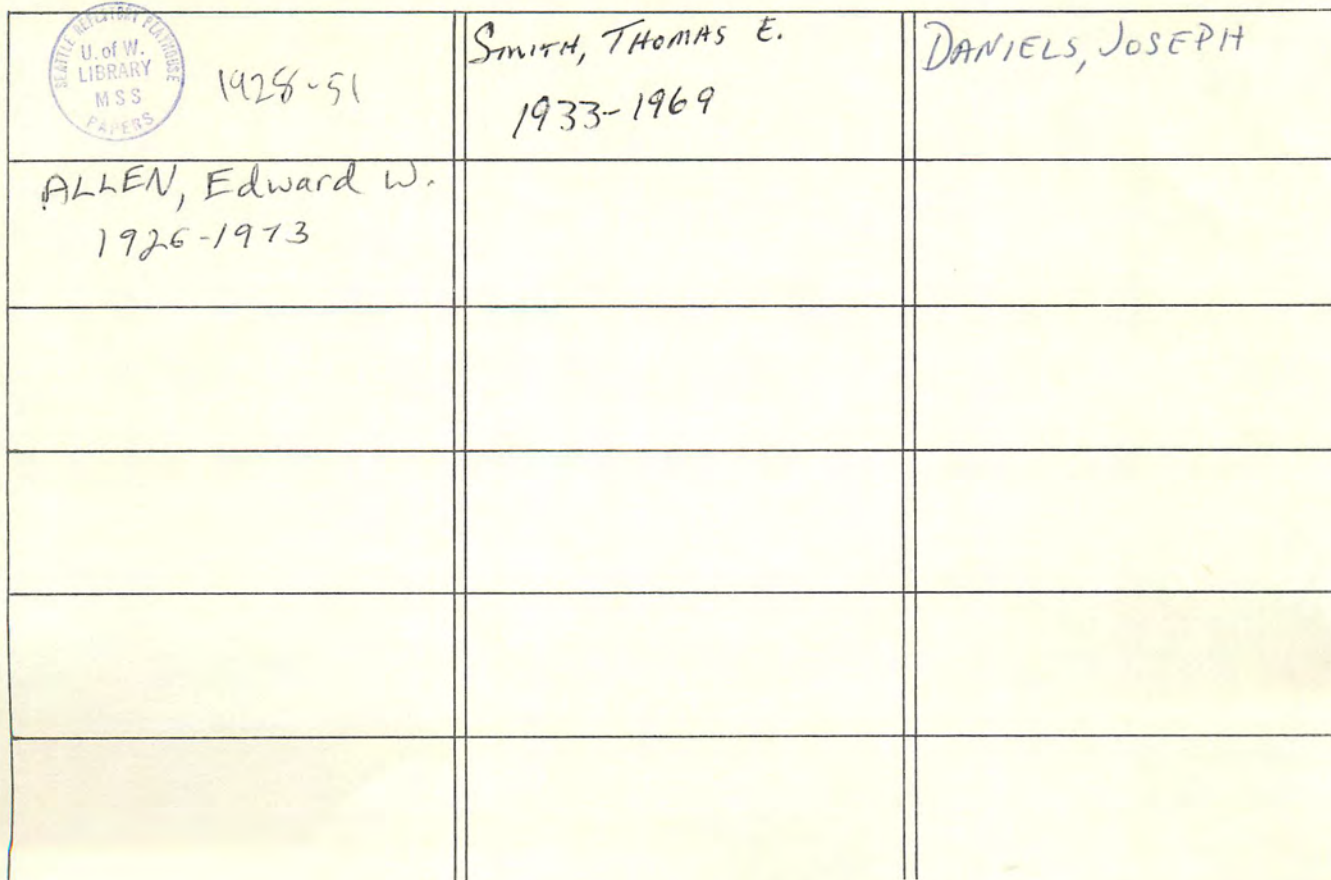 SEATTLE REPERTORY PLAYHOUSE
U. of W.
LIBRARY
MSS
PAPERS
1928-51
SMITH, THOMAS E.
1933-1969
DANIELS, JOSEPH
ALLEN, Edward W.
1926-1973